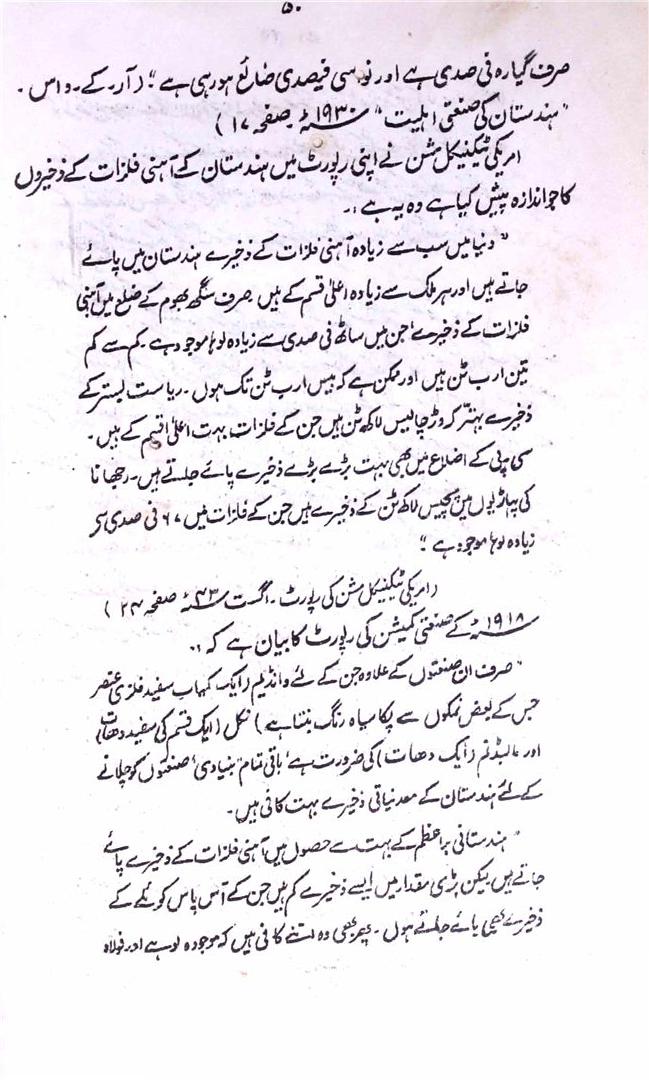 ۵۰
صرف گیارہ فی صدی ہے اور نو سی فیصدی ضائع ہو رہی ہے" (آر۔ کے۔ داس۔
"ہندستان کی صنعتی اہلیت" ۱۹۳۰ء صفحہ ۱۷)
امریکی ٹیکنیکل مشن نے اپنی رپورٹ میں ہندستان کے آہنی فلزات کے ذخیروں
کا جو اندازہ پیش کیا ہے وہ یہ ہے :۔
"دنیا میں سب سے زیادہ آہنی فلزات کے ذخیرے ہندستان میں پائے
جاتے ہیں اور ہر ملک سے زیادہ اعلیٰ قسم کے ہیں۔ صرف سنگھ بھوم کے ضلع میں آہنی
فلزات کے ذخیرے' جن میں ساٹھ فی صدی سے زیادہ لوہا موجود ہے۔ کم سے کم
تین ارب ٹن ہیں اور ممکن ہے کہ بیس ارب ٹن تک ہوں۔ ریاست بستر کے
ذخیرے بہتّر کروڑ چالیس لاکھ ٹن ہیں جن کے فلزات بہت اعلیٰ قسم کے ہیں۔
سی۔ پی کے اضلاع میں بھی بہت بڑے بڑے ذخیرے پائے جاتے ہیں۔
کی پہاڑیوں میں پچیس لاکھ ٹن کے ذخیرے ہیں جن کے فلزات میں ۶۷ فی صدی سے
زیادہ لوہا موجود ہے"
(امریکی ٹیکنیکل مشن کی رپورٹ۔ اگست ۴۳ء صفحہ ۲۴)
۱۹۱۸ء کے صنعتی کمیشن کی رپورٹ کا بیان ہے کہ :۔
"صرف ان صنعتوں کے علاوہ جن کے لئے وانڈیم (ایک کمیاب سفید فلزی عنصر
جس کے بعض نمکوں سے پکا سیاہ رنگ بنتا ہے) نکل (ایک قسم کی سفید دھات)
اور مالبڈنم (ایک دھات) کی ضرورت ہے' باقی تمام 'بنیادی' صنعتوں کو چلانے
کے لئے ہندستان کے معدنیاتی ذخیرے بہت کافی ہیں۔
"ہندستانی براعظم کے بہت سے حصوں میں آہنی فلزات کے ذخیرے پائے
جاتے ہیں لیکن بڑی مقدار میں ایسے ذخیرے کم ہیں جن کے آس پاس کوئلے کے
ذخیرے بھی پائے جاتے ہوں۔ پھر بھی وہ اتنے کافی ہیں کہ موجودہ لوہے اور فولاد